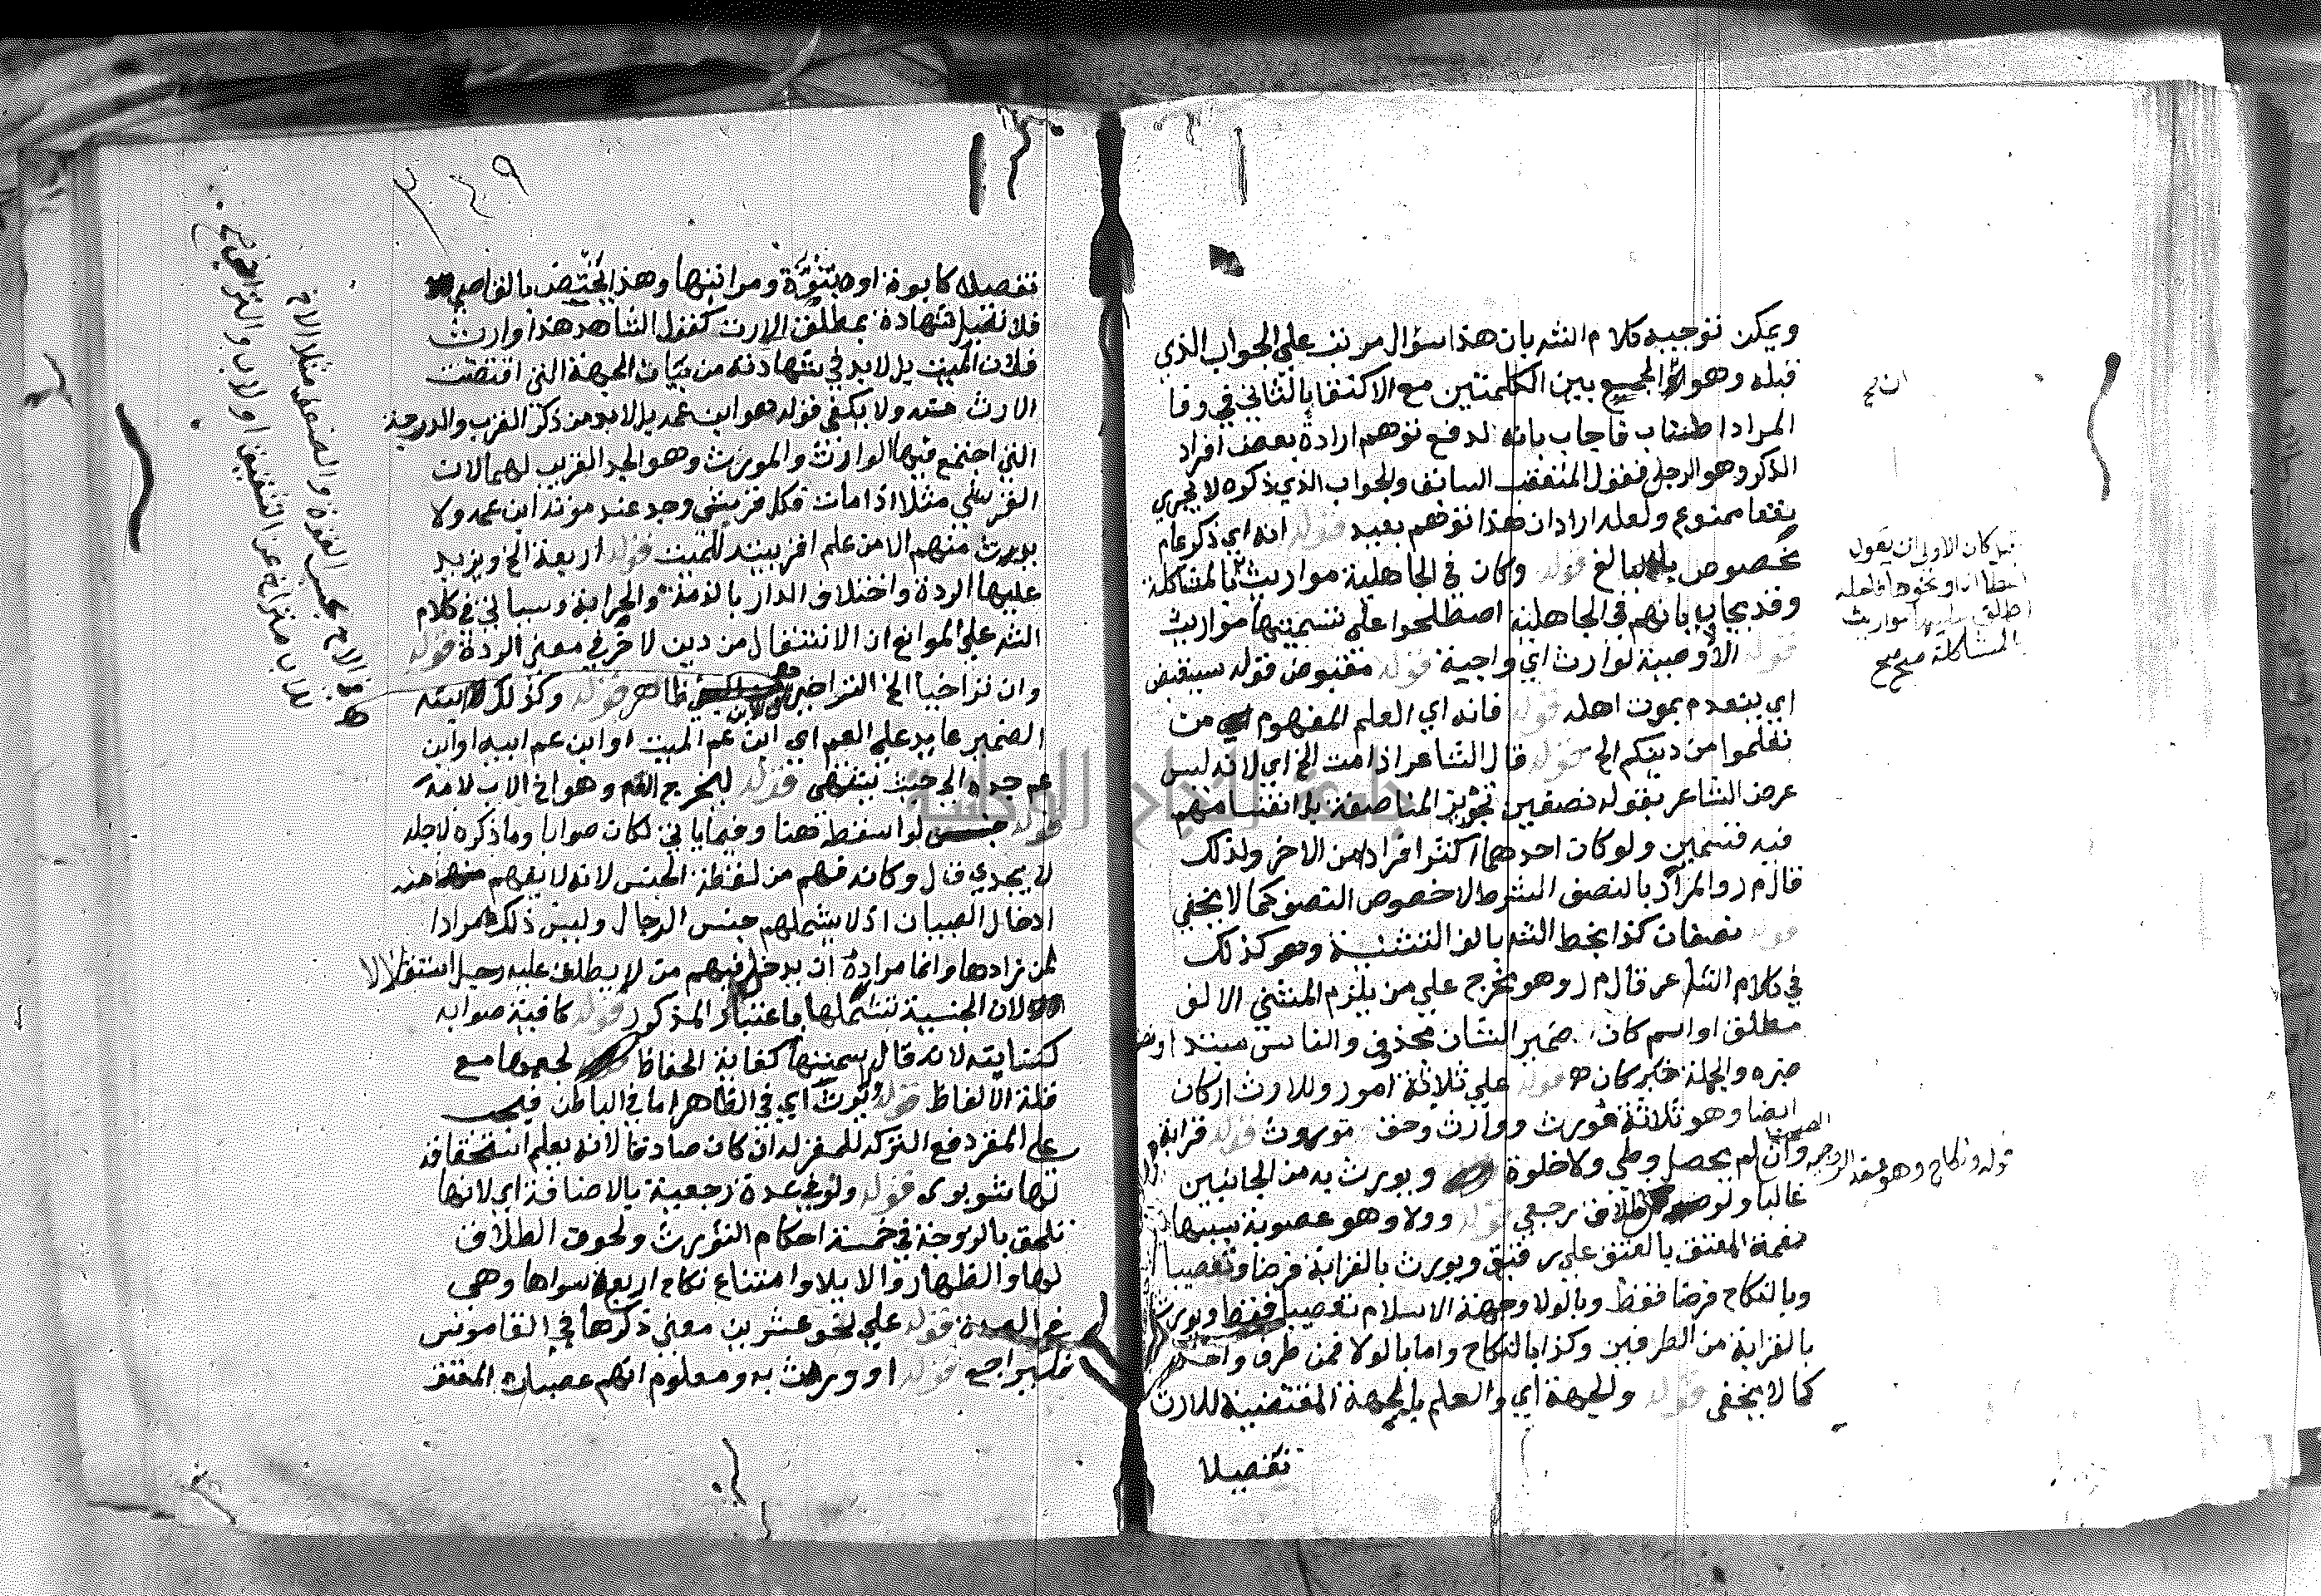 ويمكن توجيه كلام الشه بان هذا سؤال مرتب علي الجواب الذي
قبله وهو الجميع بين الكلمتين مع الاكتفا بالثاني في وفا
المراد اطناب فاجاب بانه لدفع توهم ارادة بعض افراد
الذكر وهو الرجل فقول المتعقب السابق والجواب الذي ذكره لا يجدي
نفعا ممنوع ولعله اراد ان هذا توهم بعيد قوله انه اي ذكر عام
بخصوص بالبالغ قوله وكان في الجاهلية مواريث بالمشاكلة
وقد يجاب بانهم في الجاهلية اصطلحوا علي تسميتها مواريث
قوله الا وصية لوارث اي واجبة قوله مقبوض قوله سيقبض
اي ينعدم بموت اهله قوله فانه اي العلم المفهوم من
تعلموا من دينكم الخ قوله قال الشاعر اذا مت الخ اي لانه ليس
غرض الشاعر بقوله نصفين تجويز المناصفة بل انقسامهم
فيه قسمين ولو كان احدهما اكثر افرادا من الاخر ولذلك
قال م ر والمراد بالنصف الشرط لا خصوص النصف كما لا يخفي
قوله نصفان كذا بخط الشه بالف التثنية وهو كذلك
في كلام الشاعر قال م ر وهو مخرج علي من يلزم المثني الالف
مطلق او اسم كان ضمير الشان محذوف والناس مبتدا ونصفان
خبره والجملة خبر كان قوله علي ثلاثة امور وللارث اركان
ايضا وهو ثلاثة مورث ووارث وحق موروث قوله قرابة
وان لم يحصل وطي ولا خلوة ويورث به من الجانبين
غالبا ولو طلاق رجعي قوله وولا وهو عصوبة سببها
نعمة المعتق بالعتق علي رقيق ويورث بالقرابة فرضا وتعصيبا
وبالنكاح فرضا فقط وبالولا وجهة الاسلام تعصيبا فقط ويورث
بالقرابة من الطرفين وكذا بالنكاح واما بالولا فمن طرف واحد
كما لا يخفي قوله والجهة اي والعلم بالجهة المقتضية للارث
تفصيلا
قيل كان الاولي ان يقول
او نحوها فلعله
اطلق عليها مواريث
بالمشاكلة صح صح
قوله ونكاح وهو عقد الزوجية الصحيح
٢٤٩
تفصيلا كابوة او بنوة ومراتبها وهذا يختص بالقاضي
فلا تقبل شهادة بمطلق الارث كقول الشاهد هذا وارث
فلان الميت بل لابد في شهادته من بيان الجهة التي اقتضت
الارث منه ولا يكفي قوله هو ابن عمه بل لابد من ذكر القرب والدرجة
التي اجتمع فيها الوارث والمورث وهو الجد القريب لهما لان
القرشي مثلا اذا مات فكل قرشي وجد عند موته ابن عمه ولا
يورث منهم الا من علم اقربيته للميت قوله اربعة الخ ويزيد
عليها الردة واختلاف الدار بالذمة والحرابة وسياتي في كلام
الشه علي الموانع ان الانتقال من دين لاخر في معني الردة قوله
وان تراخيا الخ التراخي ظاهر قوله وكذلك ابنه
الضمير عايد علي العم اي ابن عم الميت او ابن عم ابيه او ابن
عم جده الي حيث ينتهي قوله ليخرج العم وهو اخ الاب لامه
قوله جنس لو اسقطه هنا وفيما ياتي لكان صوابا وما ذكره لاجله
لا يجدي قال وكانه فهم من لفظة الجنس لانه لا يفهم منه
ادخال الصبيان اذ لا يشملهم جنس الرجال وليس ذلك مرادا
لمن زادها وانما مراده ان يدخل فيهم من لا يطلق عليه رجل استقلالا
لان الجنسية تشملها باعتبار المذكور قوله كافية صوابه
ككفايته لانه قال سميتها كفاية الحفاظ لجمعها مع
قلة الالفاظ قوله ورث اي في الظاهر اما في الباطن فيجب
علي المقر دفع التركة للمقر له ان كان صادقا لانه يعلم استحقاقه
لها شوبري قوله ولو في عدة رجعية بالاضافة اي لانها
تلحق بالزوجة في خمسة احكام التوريث ولحوق الطلاق
لها والظهار والايلا وامتناع نكاح اربع سواها وهي
في العدة قوله علي نحو عشرين معني ذكرها في القاموس
فليراجع قوله او ورث به ومعلوم انهم عصبات المعتق